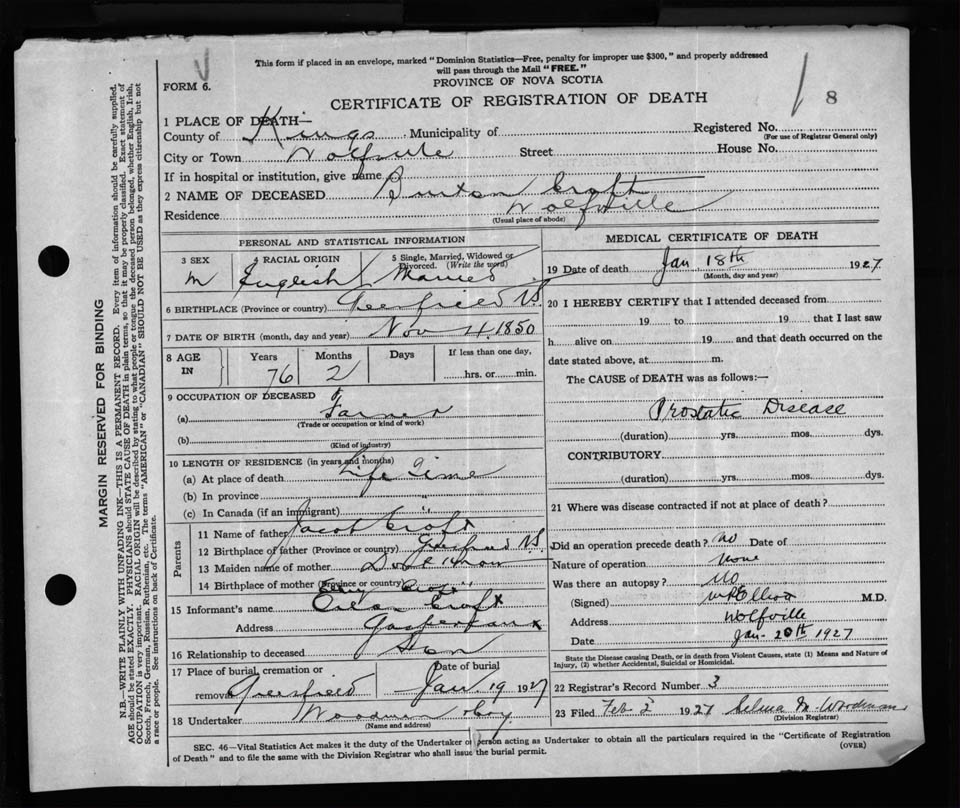 This form if placed in an envelope, marked "Dominion Statistics—Free, penalty for improper use $300," and properly addressed
will pass through the Mail "FREE."
FORM 6.
PROVINCE OF NOVA SCOTIA
CERTIFICATE OF REGISTRATION OF DEATH
8
1 PLACE OF DEATH—
County of Kings Municipality of Registered No.
(For use of Registrar General only)
City or Town Wolfville Street House No.
If in hospital or institution, give name
2 NAME OF DECEASED Burton Croft
Residence Wolfville
(Usual place of abode)
PERSONAL AND STATISTICAL INFORMATION
3 SEX 4 RACIAL ORIGIN 5 Single, Married, Widowed or Divorced. (Write the word)
M English Married
6 BIRTHPLACE (Province or country) N.S.
7 DATE OF BIRTH (month, day and year) Nov 1850
8 AGE IN Years Months Days If less than one day,
76 2 hrs. or min.
9 OCCUPATION OF DECEASED
(a) Farmer
(Trade or occupation or kind of work)
(b)
(Kind of industry)
10 LENGTH OF RESIDENCE (in years and months)
(a) At place of death Life Time
(b) In province "
(c) In Canada (if an immigrant) "
Parents
11 Name of father Jacob Croft
12 Birthplace of father (Province or country) N.S.
13 Maiden name of mother
14 Birthplace of mother (Province or country)
15 Informant's name Croft
Address Gaspereaux
16 Relationship to deceased Son
17 Place of burial, cremation or removal Greenfield Date of burial Jan 19 1927
18 Undertaker Woodman
(Name and address)
MEDICAL CERTIFICATE OF DEATH
19 Date of death Jan 18th 1927
(Month, day and year)
20 I HEREBY CERTIFY that I attended deceased from
19 to 19 that I last saw
h alive on 19 and that death occurred on the
date stated above, at m.
The CAUSE of DEATH was as follows:—
Prostatic Disease
(duration) yrs. mos. dys.
CONTRIBUTORY
(duration) yrs. mos. dys.
21 Where was disease contracted if not at place of death?
Did an operation precede death? no Date of
Nature of operation none
Was there an autopsy? no
(Signed) Elliott M.D.
Address Wolfville
Date Jan. 20th 1927
State the Disease causing Death, or in death from Violent Causes, state (1) Means and Nature of
Injury, (2) whether Accidental, Suicidal or Homicidal.
22 Registrar's Record Number 3
23 Filed Feb 2 1927 Selma M. Woodman
(Division Registrar)
SEC. 46—Vital Statistics Act makes it the duty of the Undertaker or person acting as Undertaker to obtain all the particulars required in the "Certificate of Registration
of Death" and to file the same with the Division Registrar who shall issue the burial permit.
(OVER)
MARGIN RESERVED FOR BINDING
N.B.—WRITE PLAINLY WITH UNFADING INK—THIS IS A PERMANENT RECORD. Every item of information should be carefully supplied.
AGE should be stated EXACTLY. PHYSICIANS should STATE CAUSE OF DEATH in plain terms, so that it may be properly classified. Exact statement of
OCCUPATION is very important. RACIAL ORIGIN will be described by stating to what people or tongue the deceased person belonged, whether English, Irish,
Scotch, French, German, Russian, Ruthenian, etc. The terms "AMERICAN" or "CANADIAN" SHOULD NOT BE USED as they express citizenship but not
a race or people. See instructions on back of Certificate.